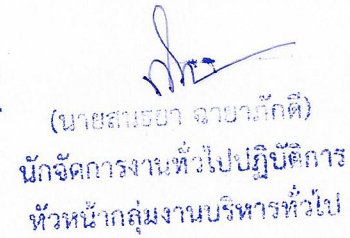 (นายสนธยา ฉายาภักดี)
นักจัดการงานทั่วไปปฏิบัติการ
หัวหน้ากลุ่มงานบริหารทั่วไป